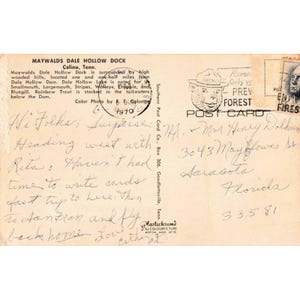 MAYWALDS DALE HOLLOW DOCK
Celina, Tenn.
Maywalds Dale Hollow Dock is surrounded by high
wooded hills, located one and one-half miles from
Dale Hollow Dam. Dale Hollow Lake is noted for its
Smallmouth, Largemouth, Stripes, Walleye, Crappie, and
Bluegill. Rainbow Trout is stocked in the tailwaters
below the Dam.
Color Photo by
1970
PREV
FOREST
FIRES
POST CARD
Hi Folks, Surprise
Heading west with
Rita. Haven't had
time to write cards
fast trip to here then
to San Fran and fly
back home. Love
Mr. & Mrs Henry
3043 May
Sarasota
Florida
33581
Southern Post Card Co., Box 300, Goodlettsville, Tenn.
Mastichrome